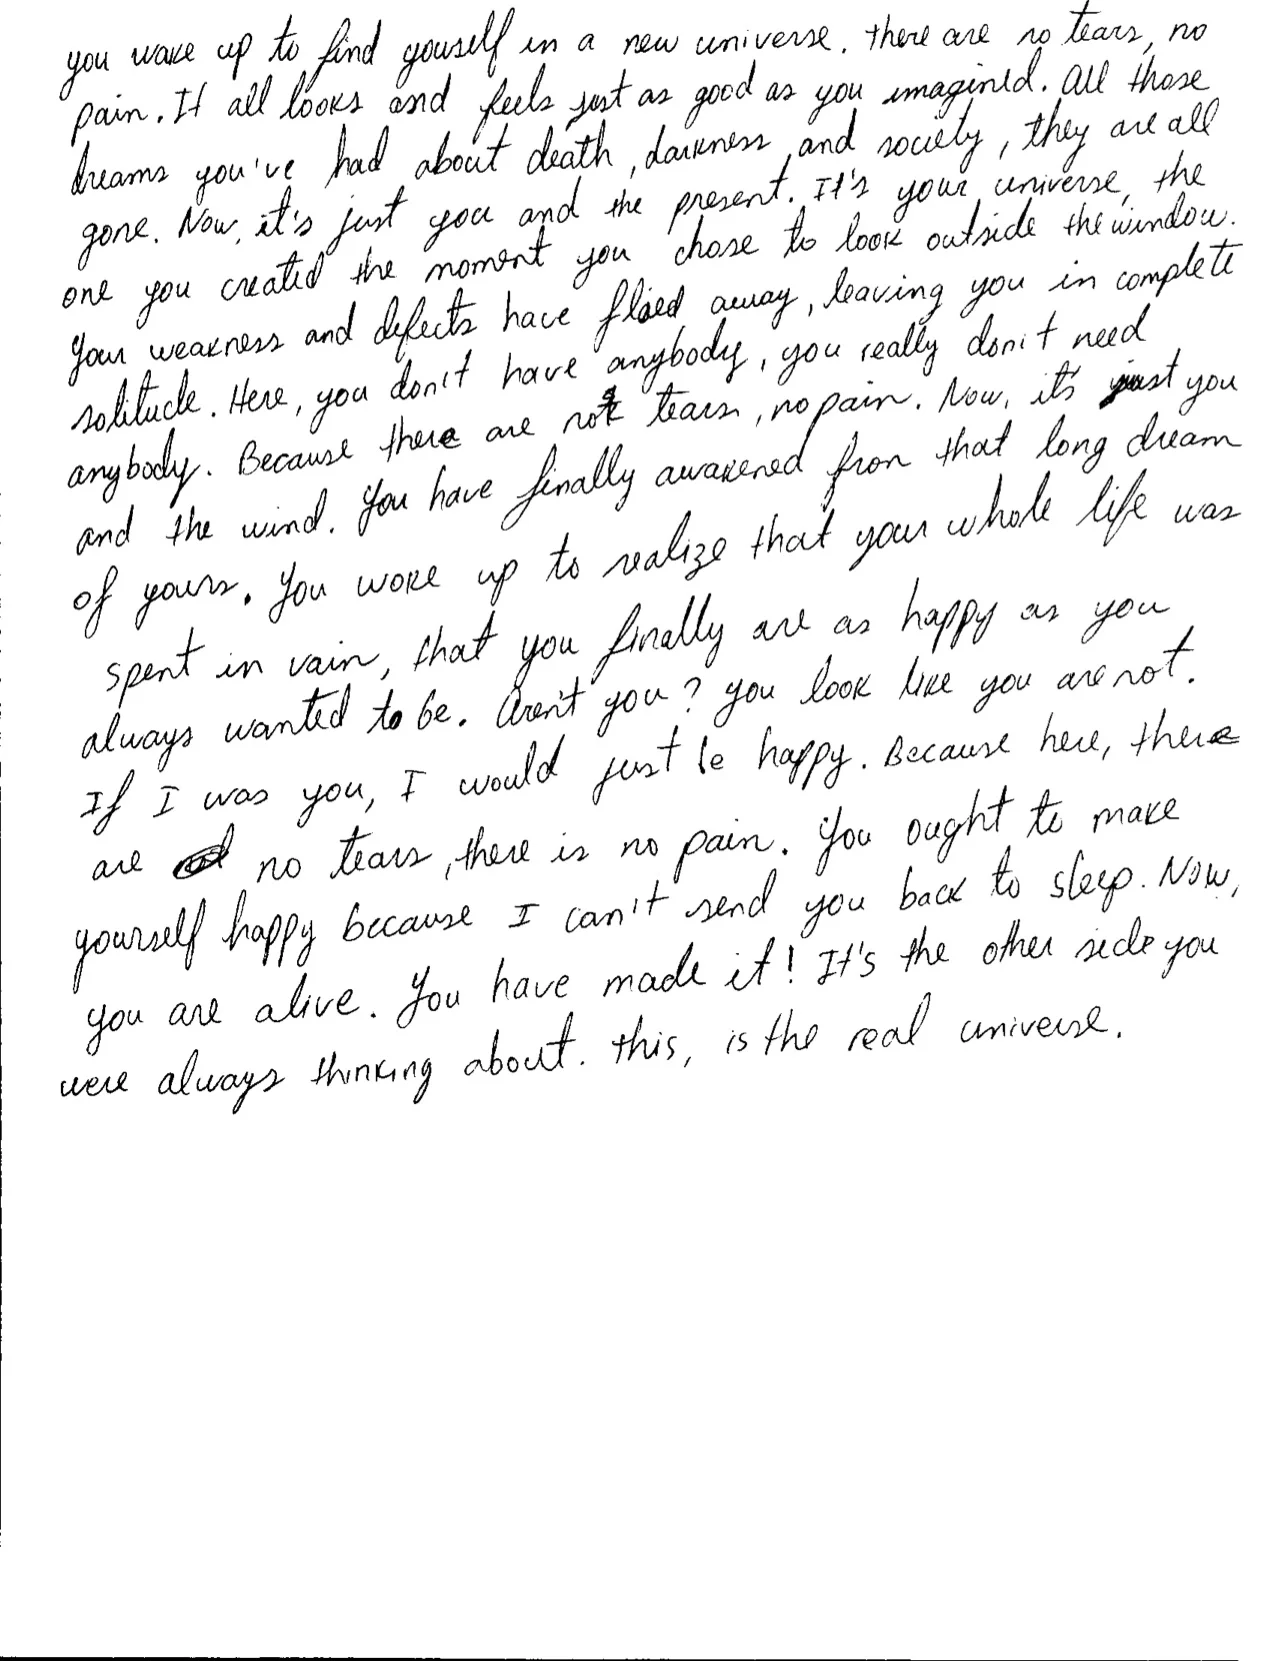 you wake up to find yourself in a new universe. there are no tears, no
pain. It all looks and feels just as good as you imagined. All those
dreams you've had about death, darkness, and society, they are all
gone. Now, it's just you and the present. It's your universe, the
one you created the moment you chose to look outside the window.
Your weakness and defects have flied away, leaving you in complete
solitude. Here, you don't have anybody, you really don't need
anybody. Because there are no tears, no pain. Now, it's just you
and the wind. You have finally awakened from that long dream
of yours. You woke up to realize that your whole life was
spent in vain, that you finally are as happy as you
always wanted to be. Aren't you? you look like you are not.
If I was you, I would just be happy. Because here, there
are no tears, there is no pain. You ought to make
yourself happy because I can't send you back to sleep. Now,
you are alive. You have made it! It's the other side you
were always thinking about. this, is the real universe.